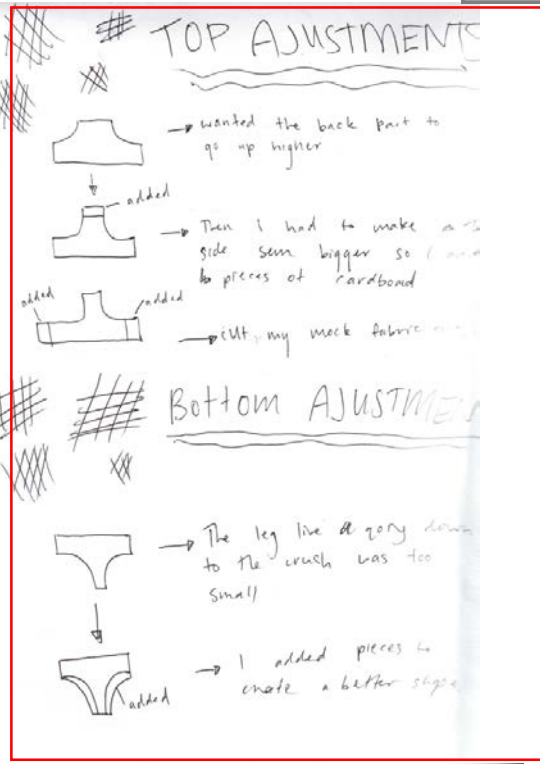 TOP AJUSTMENTS
wanted the back part to
go up higher
added
Then I had to make
side sem bigger so I
pieces of cardboard
added
added
my mock fabric
Bottom AJUSTMENTS
The leg line down
to the crush was too
small
I added pieces to
create a better shape
added